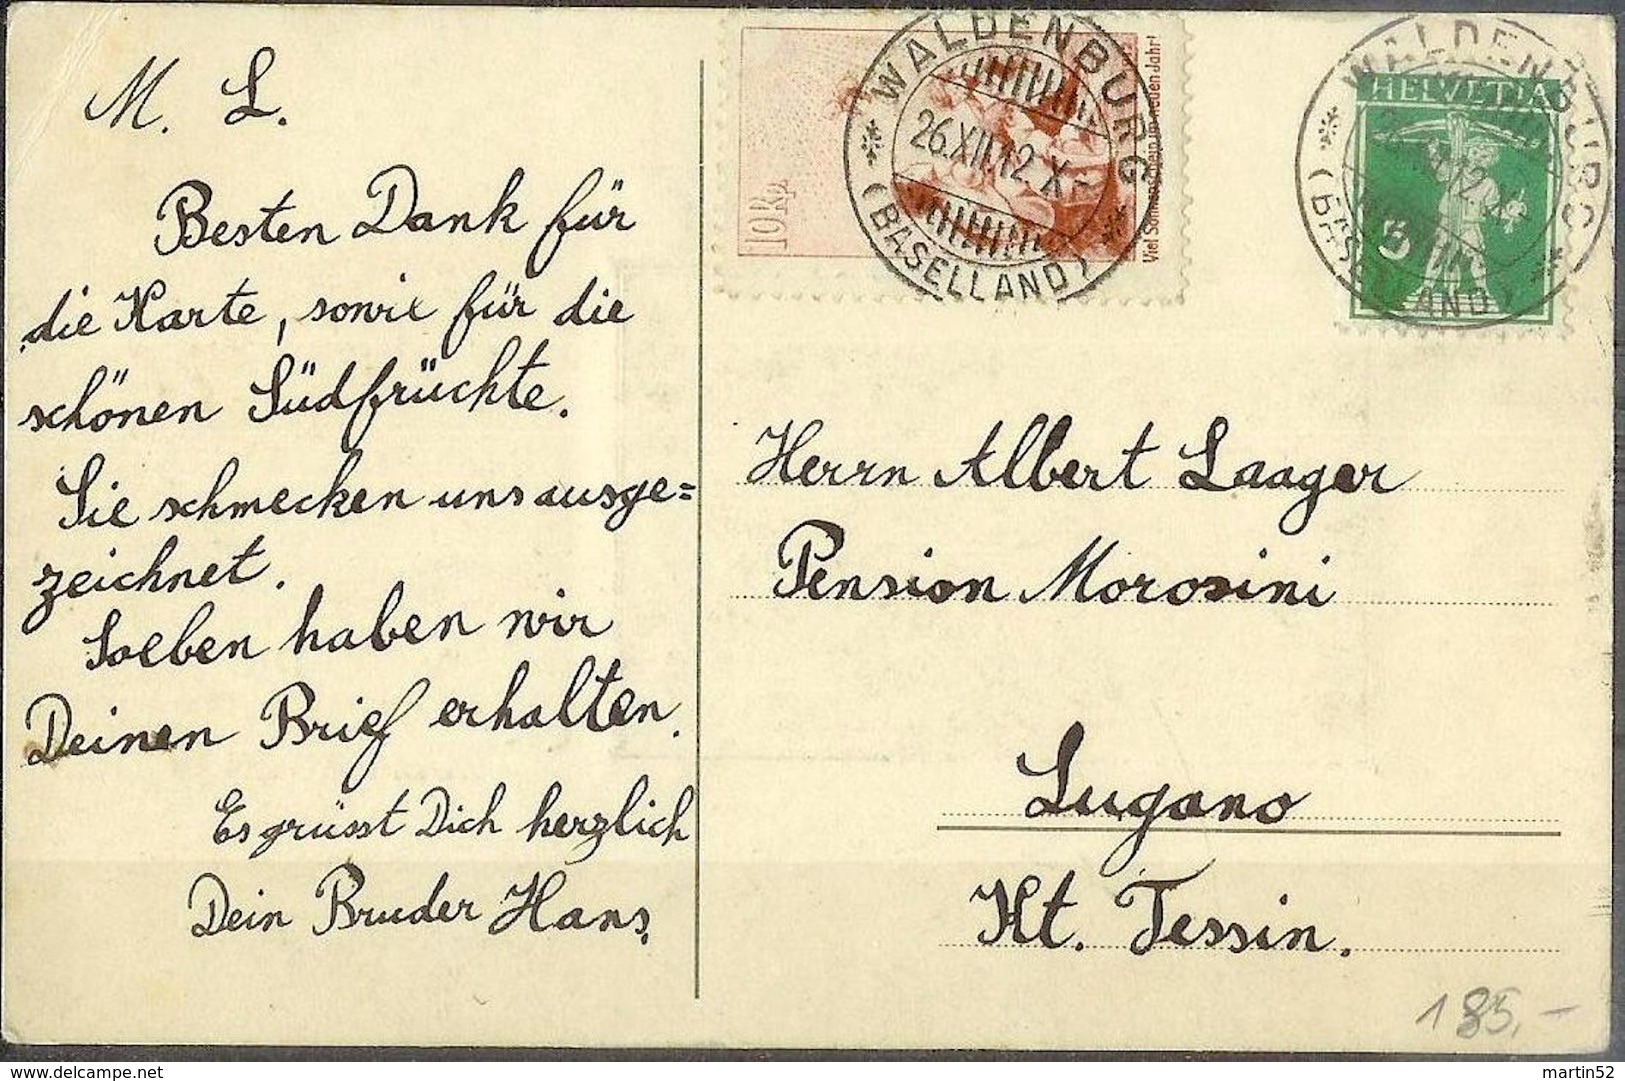 M. L.
Besten Dank für
die Karte, sowie für die
schönen Südfrüchte.
Sie schmecken uns ausge=
zeichnet.
Soeben haben wir
Deinen Brief erhalten.
Es grüsst Dich herzlich
Dein Bruder Hans.
10 Rp
Viel Sonnenschein im neuen Jahr!
WALDENBURG
26.XII.12.X-
(BASELLAND)
WALDENBURG
(BASELLAND)
HELVETIA
5
Herrn Albert Laager
Pension Morosini
Lugano
Kt. Tessin.
185,-
delcampe.net
martin52